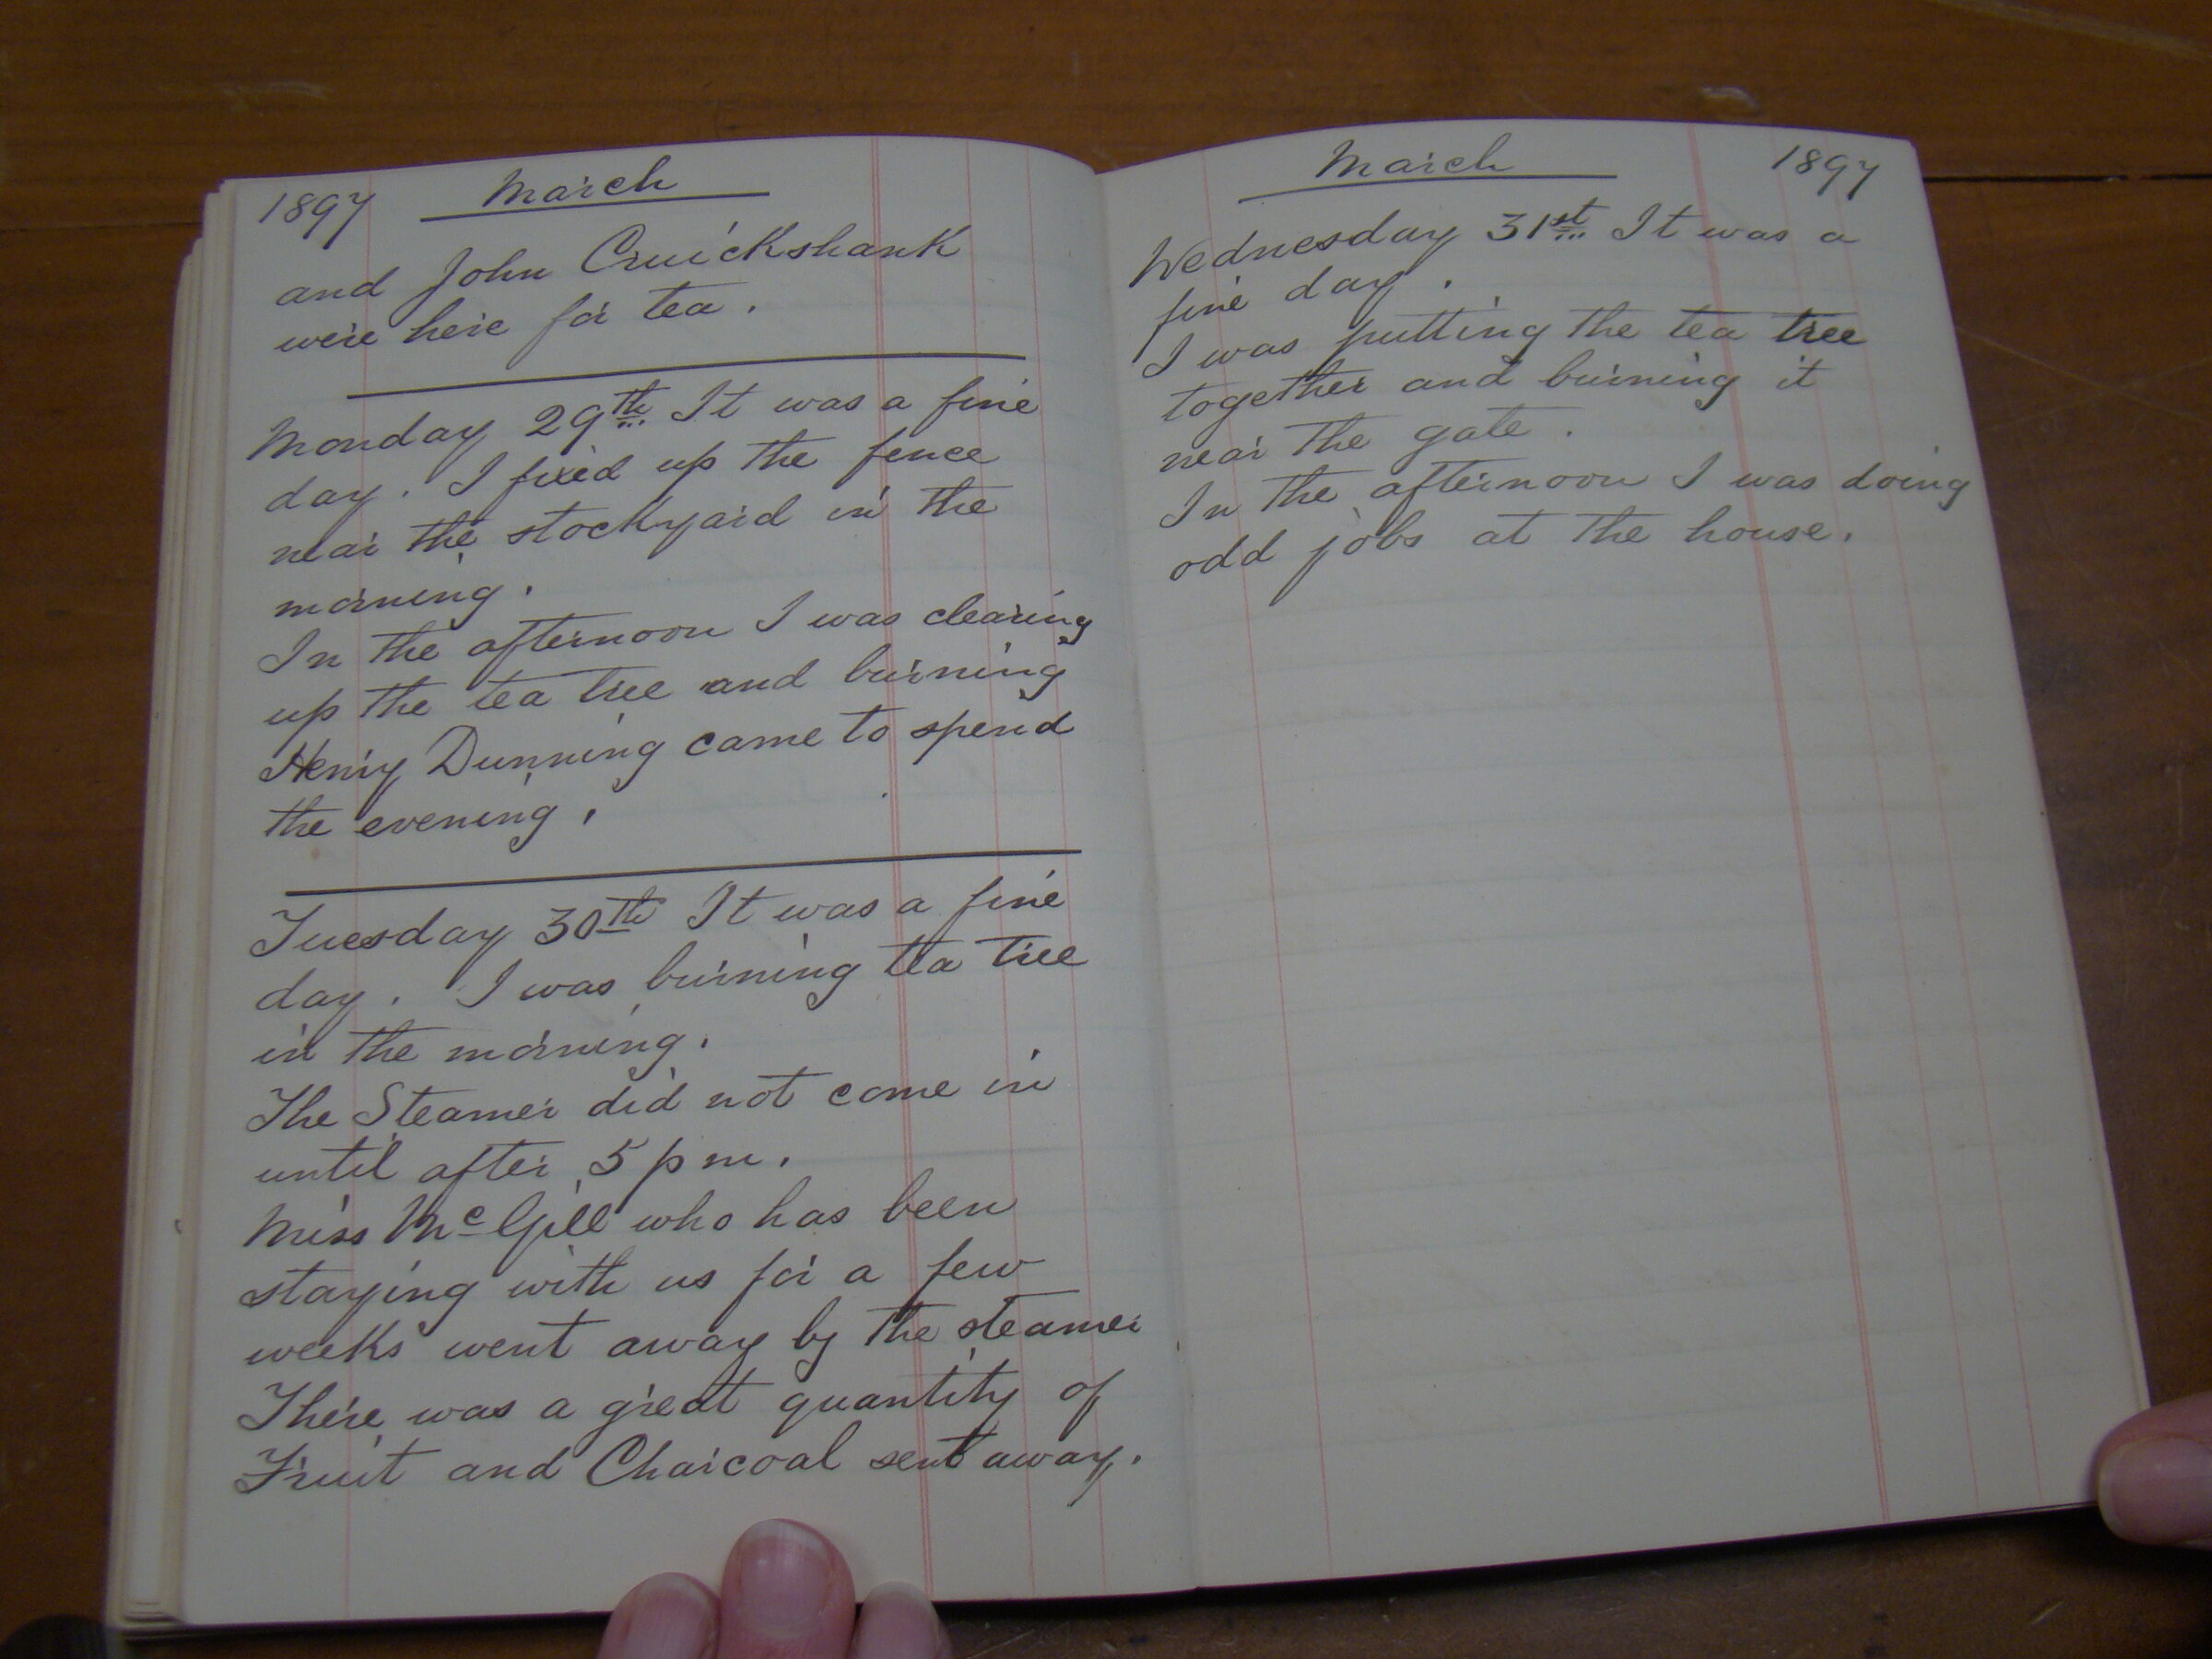 1897 March
and John Cruickshank
were here for tea.
Monday 29th It was a fine
day. I fixed up the fence
near the stockyard in the
morning.
In the afternoon I was clearing
up the tea tree and burning
Henry Dunning came to spend
the evening.
Tuesday 30th It was a fine
day. I was burning tea tree
in the morning.
The Steamer did not come in
until after 5 pm.
Miss McGill who has been
staying with us for a few
weeks went away by the steamer
There was a great quantity of
Fruit and Charcoal sent away.
March 1897
Wednesday 31st It was a
fine day.
I was putting the tea tree
together and burning it
near the gate.
In the afternoon I was doing
odd jobs at the house.